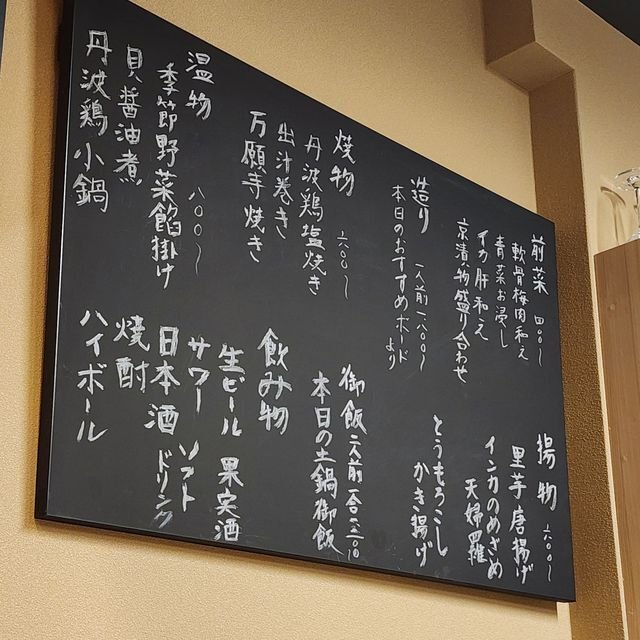 前菜 四〇〇〜
軟骨梅肉和え
青菜お浸し
イカ肝和え
京漬物盛り合わせ
造り 一人前 一八〇〇〜
本日のおすすめボードより
焼物 六〇〇〜
丹波鶏塩焼き
出汁巻き
万願寺焼き
温物 八〇〇〜
季節野菜餡掛け
貝醤油煮
丹波鶏小鍋
揚物 六〇〇〜
里芋唐揚げ
インカのめざめ
天婦羅
とうもろこし
かき揚げ
御飯 二人前一合
本日の土鍋御飯
飲み物
生ビール 果実酒
サワー ソフト
日本酒 ドリンク
焼酎
ハイボール